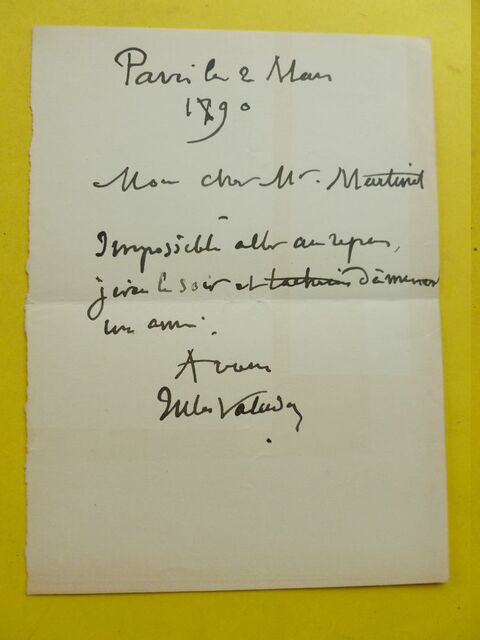 Paris le 2 Mars
1890
Mon cher Mr. Martinet
Impossible aller au repas,
j'irai le soir et d'amener
un ami.
A vous
Jules Valadon